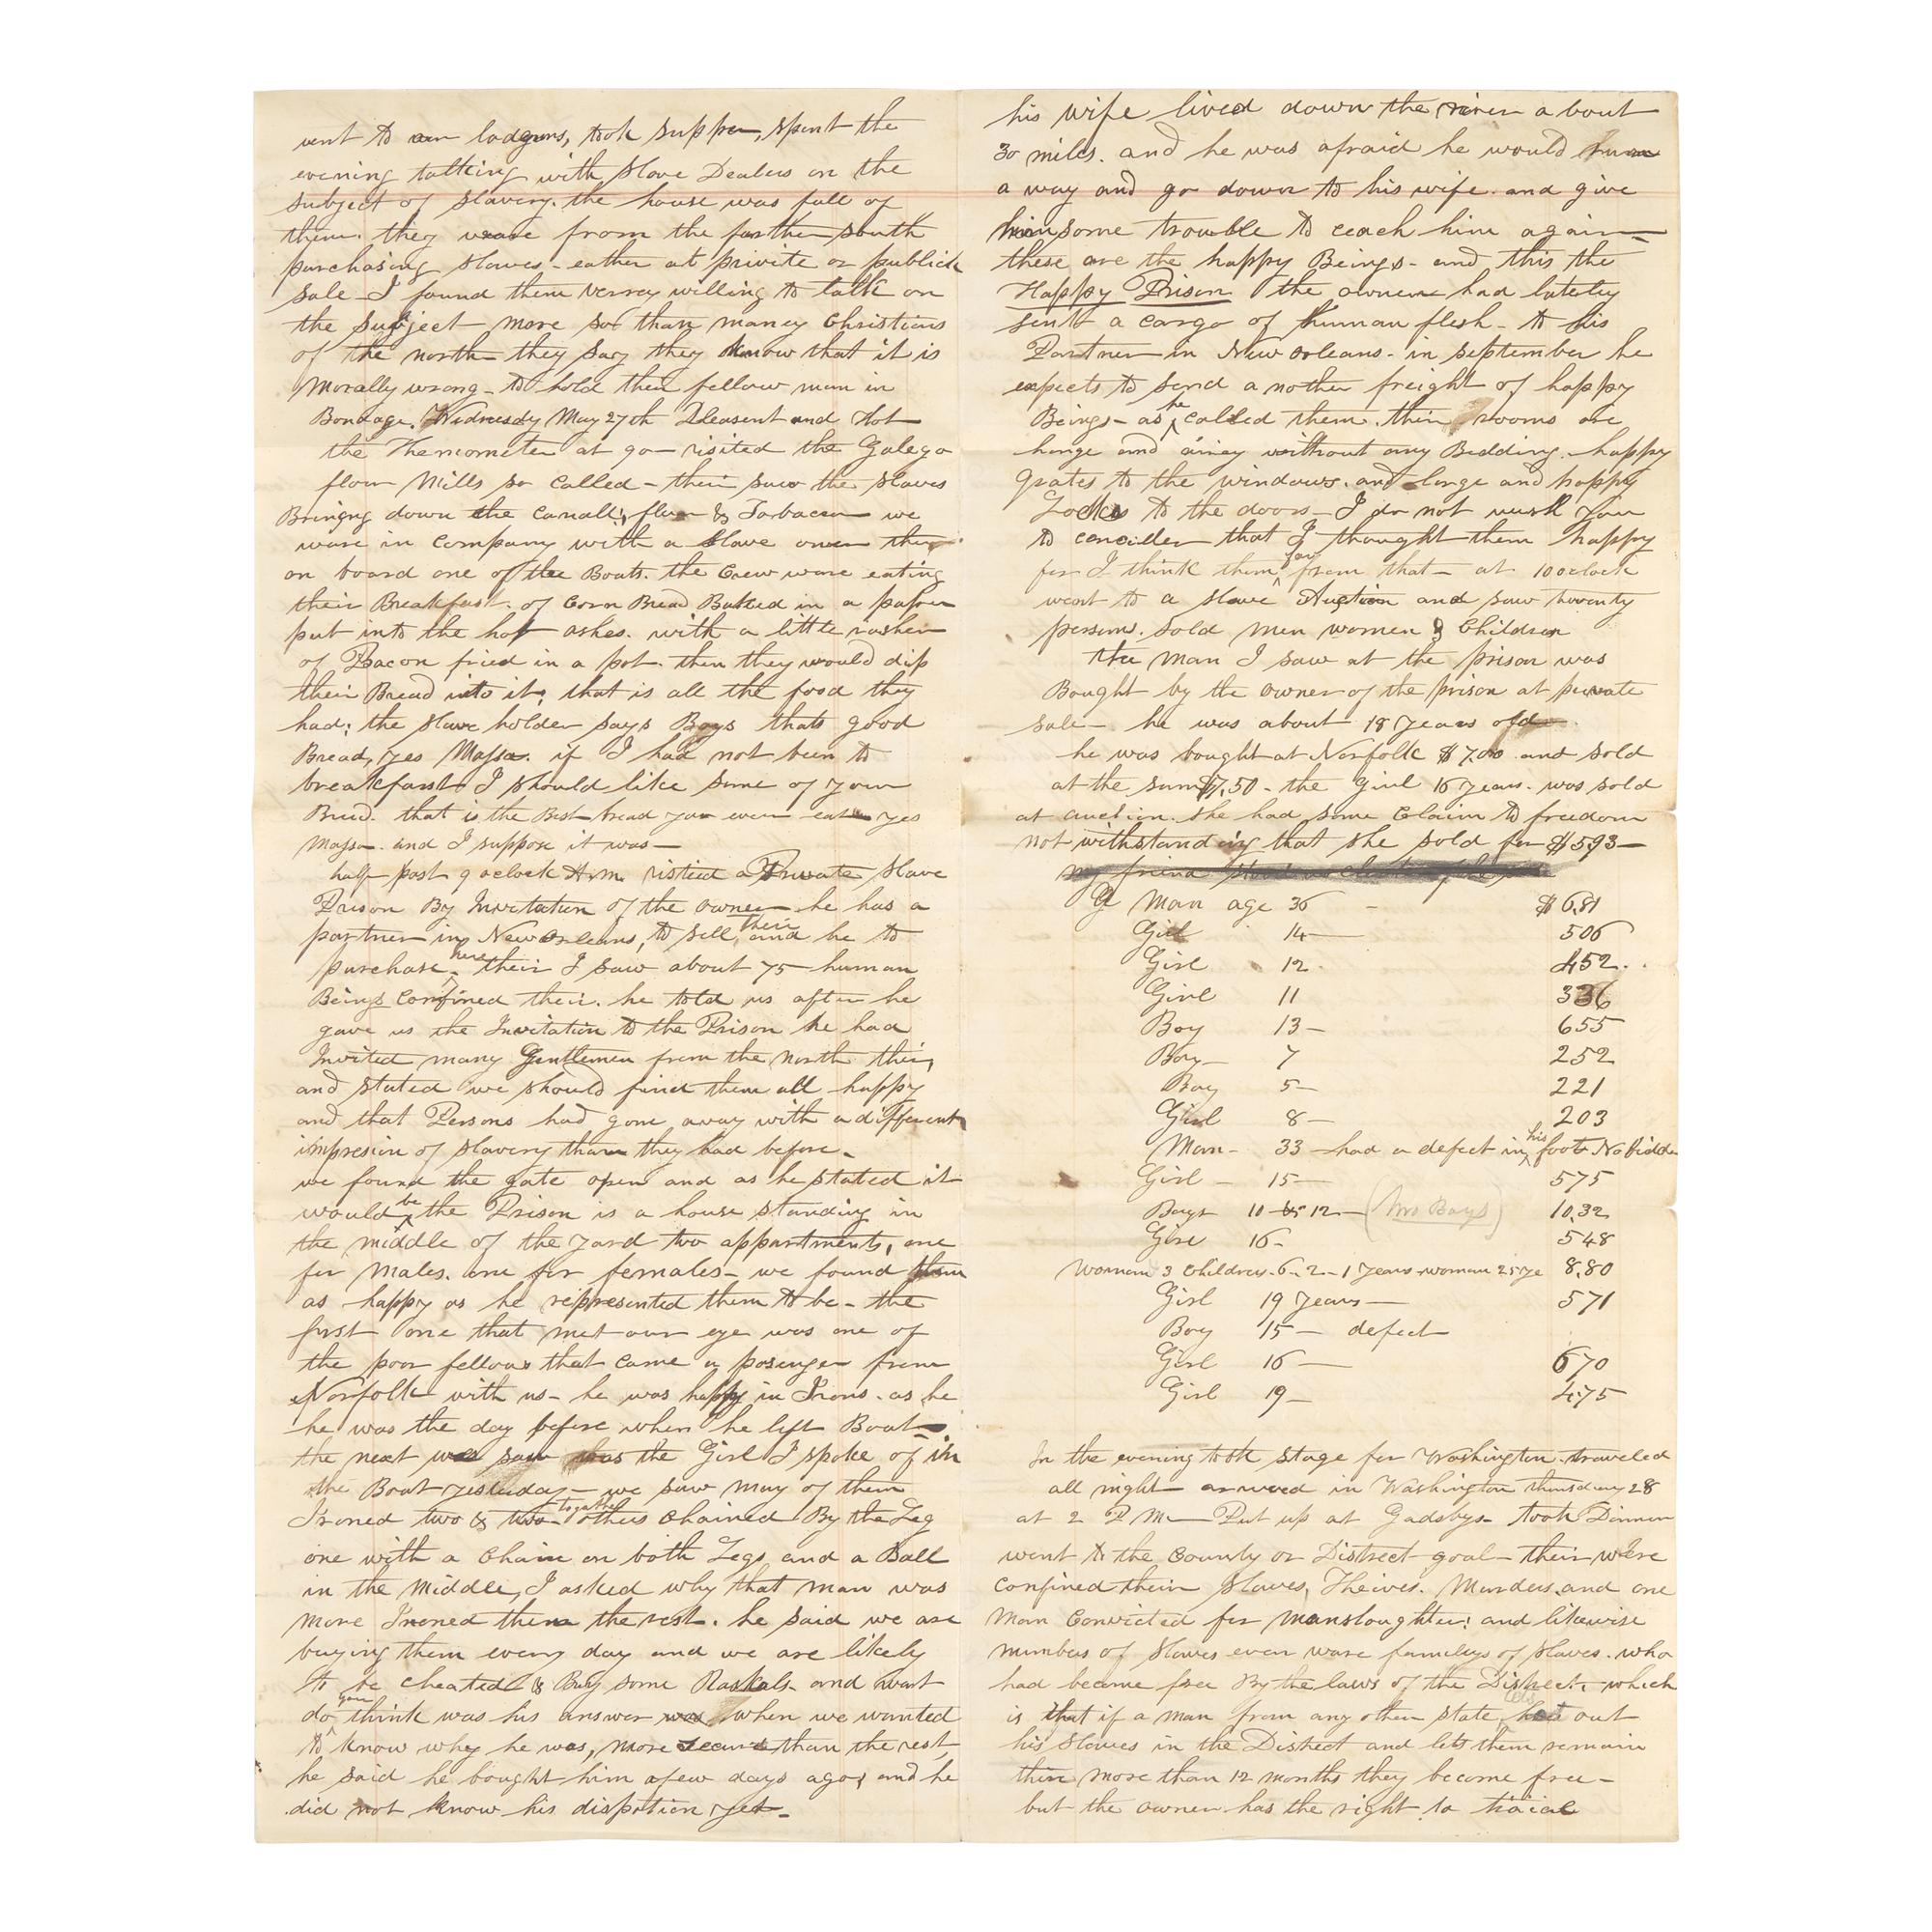 went to our lodgens, took supper, spent the
evening talking with Slave Dealers on the
subject of slavery. the house was full of
them. they ware from the farther south
purchasing slaves - eather at privite or publick
sale - I found them verrey willing to talk on
the subject - more so than maney Christians
of the north - they say they know that it is
Morally wrong - to hold their fellow man in
Bondage. Wednesdy May 27th Pleasent and Hot
the Themometer at 90 - visited the Galego
flour Mills so called - their saw the slaves
Bringng down the canall; flour & Tobacco we
ware in company with a slave owner their
on board one of the Boats. the Crew ware eating
their Breakfast. of Corn Bread Baked in a paper
put into the hot ashes. with a little rasher
of Bacon fried in a pot. then they would dip
their Bread into it; that is all the food they
had; the slave holder says Boys thats good
Bread, yes Massa. if I had not been to
breakfarst I should like some of your
Bread. that is the Best bread you ever eat yes
Massa. and I suppose it was -
half past 9 oclock A.m. visited a Private Slave
Prison By Invitation of the owner he has a
partner in New Orleans, to sell their and he to
purchase here their I saw about 75 human
Beings confined their. he told us after he
gave us the Invitation to the Prison he had
Invited many Gentlemen from the North their,
and stated we should find them all happy
and that Persons had gone away with a different
impresion of slavery than they had before.
we found the gate open and as he stated it
would be the Prison is a house standing in
the middle of the yard two appartments, one
for Males. one for females - we found them
as happy as he represented them to be - the
first one that met our eye was one of
the poor fellows that came a pasenger from
Norfolk with us - he was happy in Irons. as he
he was the day before when he left Boat -
the next we saw was the Girl I spoke of in
the Boat yesterday - we saw many of them
Ironed two & two together others chained By the Leg
one with a Chain on both Legs and a Ball
in the Middle, I asked why that man was
more Ironed then the rest. he said we are
buying them every day and we are likely
to be cheated & Buy some Raskals. and what
do you think was his answer when we wanted
to know why he was, more secured than the rest,
he said he bought him afew days ago; and he
did not know his dispotion yet -
his wife lived down the river a bout
30 miles. and he was afraid he would run
a way and go down to his wife. and give
him some trouble to ceach him again -
these are the happy Beings - and this the
Happy Prison the owner had lateley
sent a cargo of human flesh - to his
Partner in New orleans. in september he
expects to send a nother freight of happy
Beings - as he called them. their rooms are
large and airiey without any Bedding. happy
grates to the windows. and large and happy
Locks to the doors - I do not wish you
to concider that I thought them happy
for I think them far from that - at 10 oclock
went to a slave Auction and saw twenty
persons. sold men women & Children
the man I saw at the prison was
Bought by the owner of the prison at private
sale - he was about 18 years old -
he was bought at Norfolk $7.00 and sold
at the sum $7,50 - the Girl 16 years. was sold
at auction. she had some Claim to freedom
not withstanding that she sold for $593 -
my friend
Man age 36 - $681
Girl 14 - 506
Girl 12. 452.
Girl 11 336
Boy 13 - 655
Boy - 7 252
Boy 5 - 221
Girl 8 - 203
Man - 33 - had a defect in his foot No bidder
Girl - 15 - 575
Boys 10 - 12 - (two Boys) 10,32
Girl 16 - 548
Woman 3 Children. 6 - 2 - 1 years. woman 25 ye 8,80
Girl 19 years - 571
Boy 15 - defect
Girl 16 - 670
Girl 19 - 475
In the evening took stage for Washington. traveled
all night - arived in Washington thursday 28
at 2 P M - Put up at Gadsbys - took Dinner
went to the County or District goal - their were
confined their Slaves, Theives. Murders. and one
Man Convicted for manslaughter; and likewise
numbers of slaves even ware familys of slaves. who
had became free By the laws of the District. which
is that if a man from any other state lets out
his slaves in the District and lets them remain
their more than 12 months they become free -
but the owner has the right to